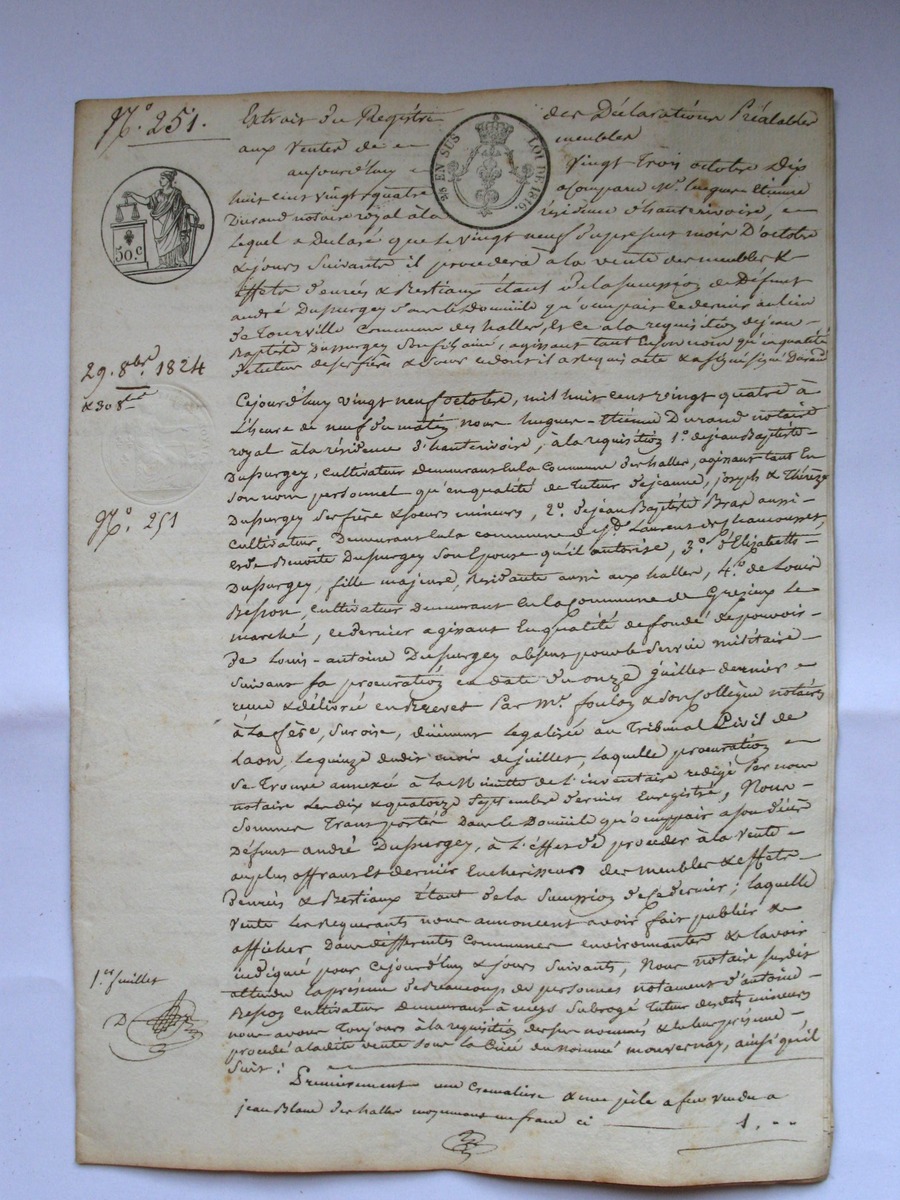 N.o 251.
Extrait du Registre des Déclarations Préalables
aux Ventes de meubles
aujourd'huy vingt Trois octobre dix
huit cent vingt quatre a Comparu M.e hugues Etienne
Durand notaire royal à la résidence d'hauterivoire,
Lequel a Declaré que le vingt neuf du present mois D'octobre
& jours Suivants il procedera à la vente des meubles &
Effets denrées & Bestiaux étant de la Succession de Défunt
andré Dupurgey dans le Domicile qu'occupait ce dernier au lieu
de Tourville Commune des halles, Et ce a la requisition de jean
Baptiste Dupurgey Son fils ainé, agissant tant en Son nom qu'en qualité
de tuteur de ses frères & Soeurs endroit il a requis acte & a Signé Signé Durand
28 EN SUS LOI DE 1816
50.c
29. 8bre 1824
& 30 8bre
N.o 251
Cejourd'huy vingt neuf octobre, mil huit cent vingt quatre à
L'heure de neuf du matin nous hugues-Etienne Durand notaire
royal à la résidence d'hauterivoire, à la requisition 1.o de jean Baptiste
Dupurgey, cultivateur demeurant en la Commune des halles, agissant tant En
Son nom personnel qu'en qualité de Tuteur de jeanne, joseph & Thérèze
Dupurgey Ses frère & soeurs mineurs, 2.o de jean Baptiste Bras aussi
cultivateur Demeurant en la commune de S.t Laurent de Chamousset,
et de Benoite Dupurgey Son Epouse qu'il autorise, 3.o d'Elizabeth
Dupurgey, fille majeure, residante aussi aux halles, 4.o de Louis
Besson, cultivateur demeurant En la Commune de Grésieux Le
marché, ce dernier agissant En qualité de fondé de pouvoir
de Louis-antoine Dupurgey absent pour le Service militaire
Suivant Sa procuration en date du onze juillet dernier
reçue & délivrée en Brevet Par M.e foulon & Son Collègue notaires
à Lafère, Sur oise, duement Legalisée au Tribunal Civil de
Laon, Le quinze dudit mois de juillet, laquelle procuration
Se Trouve annexée à La Minutte de L'inventaire redigé Par nous
notaire Les dix & quatorze Septembre dernier Enregistré, Nous
Sommes Transportés Dans le Domicile qu'occuppait a Son décès
Défunt andré Dupurgey, à L'effet de proceder à la Vente
au plus offrant Et dernier Encherisseur des meubles & effets
Denrées & Bestiaux étant de la Succession de ce dernier; laquelle
Vente Les requerants nous annoncent avoir fait publier &
afficher Dans différentes Communes environnantes & l'avoir
indiqué pour Cejourd'huy & jours Suivants, Nous notaire Susdit
attendu la présence de Beaucoup de personnes notament d'antoine
Besson Cultivateur demeurant à meys Subrogé Tuteur desdits mineurs
nous avons Toujours à la requisition des sus nommés & en leur présence
procédé a ladite vente sous la Criée du nommé mouvernay, ainsi qu'il
Suit:
1.er feuillet
D
Premierement une Cremalière & une pèle a feu vendu a
jean Blanc des halles moyennant un franc ci 1. „ „